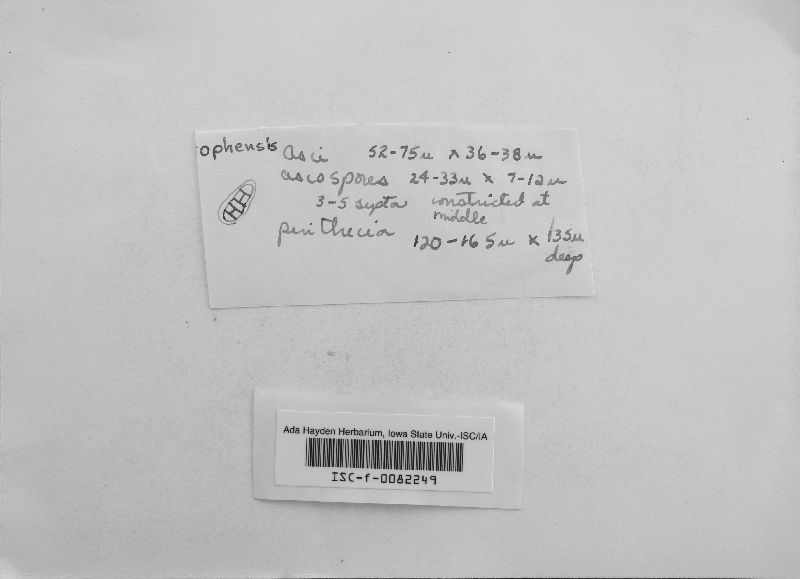 ophensis asci 52-75u x 36-38u
ascospores 24-33u x 7-12u
3-5 septa constricted at
middle
perithecia 120-165u x 135u
deep
Ada Hayden Herbarium, Iowa State Univ.-ISC/IA
ISC-f-0082249